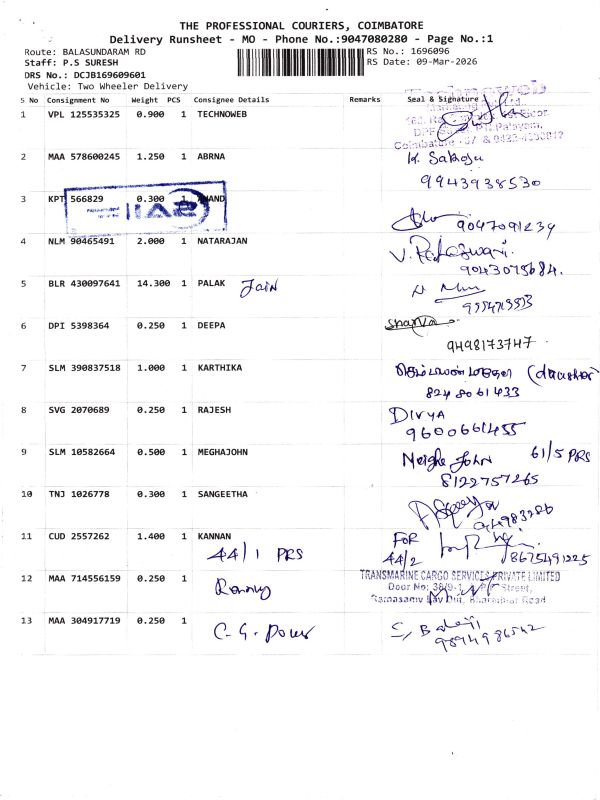 THE PROFESSIONAL COURIERS, COIMBATORE
Delivery Runsheet - MO - Phone No.:9047080280 - Page No.:1
Route: BALASUNDARAM RD
RS No.: 1696096
Staff: P.S SURESH
RS Date: 09-Mar-2026
DRS No.: DCJB169609601
Vehicle: Two Wheeler Delivery
S No Consignment No Weight PCS Consignee Details Remarks Seal & Signature
1 VPL 125535325 0.900 1 TECHNOWEB
2 MAA 578600245 1.250 1 ABRNA
9943938530
3 KPT 566829 0.300 1 ANAND
9047091239
4 NLM 90465491 2.000 1 NATARAJAN
9043075684.
5 BLR 430097641 14.300 1 PALAK Jain
6 DPI 5398364 0.250 1 DEEPA
9498173747
7 SLM 390837518 1.000 1 KARTHIKA
8248061433
8 SVG 2070689 0.250 1 RAJESH DIVYA
9600661455
9 SLM 10582664 0.500 1 MEGHAJOHN John 61/5 PRS
8122757265
10 TNJ 1026778 0.300 1 SANGEETHA
11 CUD 2557262 1.400 1 KANNAN FOR
44/1 PRS 44/2 8675491225
12 MAA 714556159 0.250 1 TRANSMARINE CARGO SERVICES PRIVATE LIMITED
Door No: 38/9-1, Street,
13 MAA 304917719 0.250 1
C.G. Power S, Balaji
9894986542